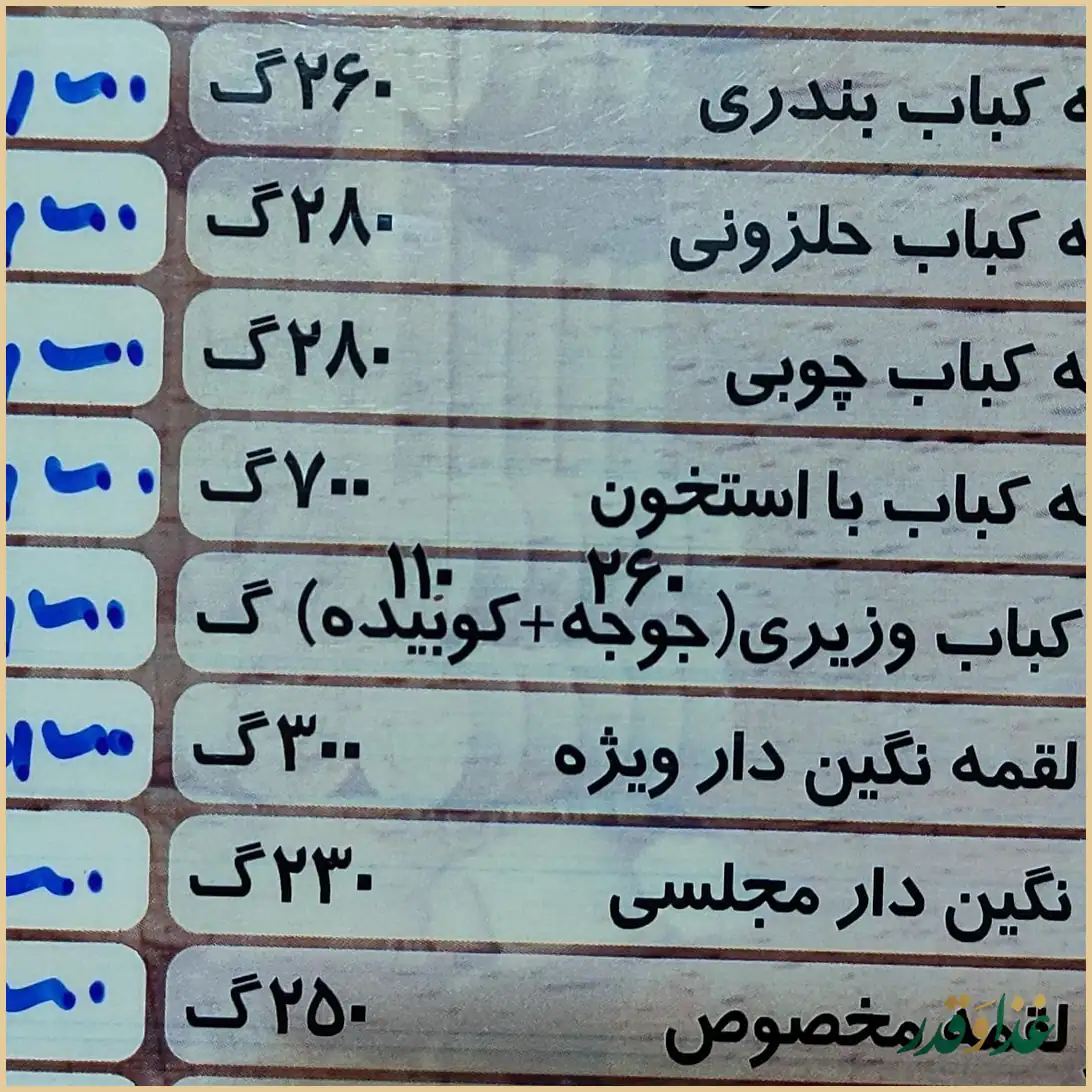 ه کباب بندری ۲۶۰گ
ه کباب حلزونی ۲۸۰گ
ه کباب چوبی ۲۸۰گ
ه کباب با استخون ۷۰۰گ
۲۶۰ ۱۱۰
کباب وزیری(جوجه+کوبیده) گ
لقمه نگین دار ویژه ۳۰۰گ
نگین دار مجلسی ۲۳۰گ
لقمه مخصوص ۲۵۰گ
غذا و قدر